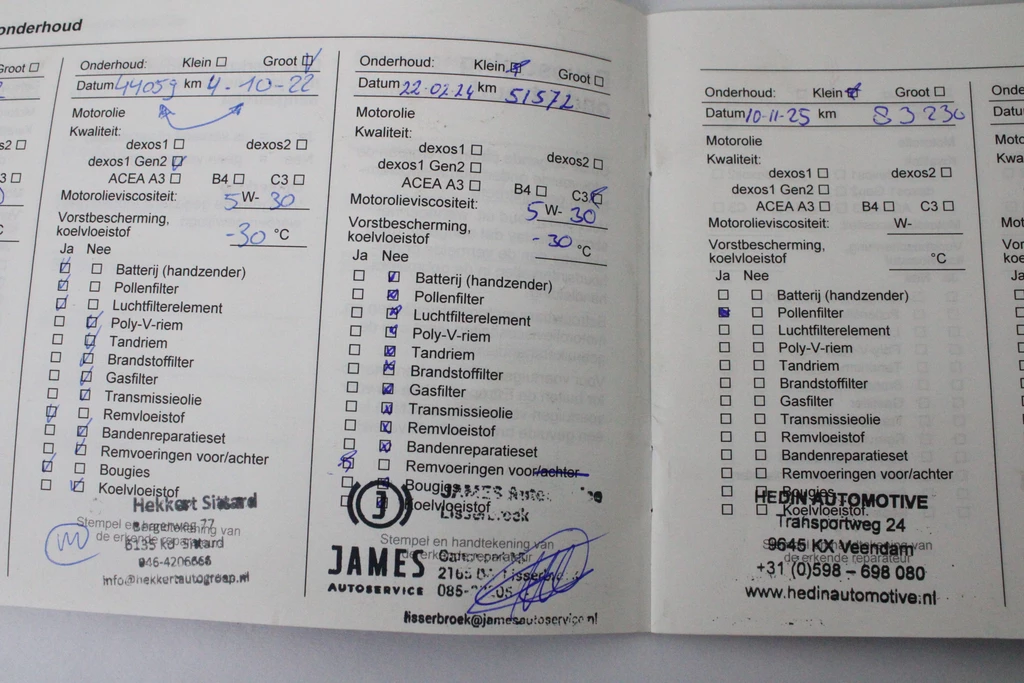 onderhoud
Groot
Onderhoud: Klein Groot
Datum 44059 km 4-10-22
Motorolie
Kwaliteit:
dexos1 dexos2
dexos1 Gen2
ACEA A3 B4 C3
Motorolieviscositeit: 5 W- 30
Vorstbescherming,
koelvloeistof -30 °C
Ja Nee
Batterij (handzender)
Pollenfilter
Luchtfilterelement
Poly-V-riem
Tandriem
Brandstoffilter
Gasfilter
Transmissieolie
Remvloeistof
Bandenreparatieset
Remvoeringen voor/achter
Bougies
Koelvloeistof
Hekkert Sittard
Stempel en handtekening van
de erkende reparateur
Bergerweg 77
6135 KD Sittard
046-4206666
info@hekkertautogroep.nl
Onderhoud: Klein Groot
Datum 22-02-24 km 51572
Motorolie
Kwaliteit:
dexos1 dexos2
dexos1 Gen2
ACEA A3 B4 C3
Motorolieviscositeit: 5 W- 30
Vorstbescherming,
koelvloeistof -30 °C
Ja Nee
Batterij (handzender)
Pollenfilter
Luchtfilterelement
Poly-V-riem
Tandriem
Brandstoffilter
Gasfilter
Transmissieolie
Remvloeistof
Bandenreparatieset
Remvoeringen voor/achter
Bougies
Koelvloeistof
JAMES Autoservice
Lisserbroek
Stempel en handtekening van
de erkende reparateur
JAMES
AUTOSERVICE
2165 Lisserbroek
085-
lisserbroek@jamesautoservice.nl
Onderhoud: Klein Groot
Datum 10-11-25 km 83230
Motorolie
Kwaliteit:
dexos1 dexos2
dexos1 Gen2
ACEA A3 B4 C3
Motorolieviscositeit: W-
Vorstbescherming,
koelvloeistof °C
Ja Nee
Batterij (handzender)
Pollenfilter
Luchtfilterelement
Poly-V-riem
Tandriem
Brandstoffilter
Gasfilter
Transmissieolie
Remvloeistof
Bandenreparatieset
Remvoeringen voor/achter
Bougies
Koelvloeistof
HEDIN AUTOMOTIVE
Transportweg 24
Stempel en handtekening van
de erkende reparateur
9645 KX Veendam
+31 (0)598 – 698 080
www.hedinautomotive.nl